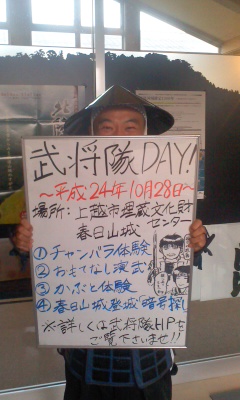 武将隊DAY!
～平成24年10月28日～
場所:上越市埋蔵文化財
センター
春日山城
①チャンバラ体験
②おもてなし演武
③かぶと体験
④春日山城登城暗号探し
※詳しくは武将隊HPを
ご覧下さいませ!!